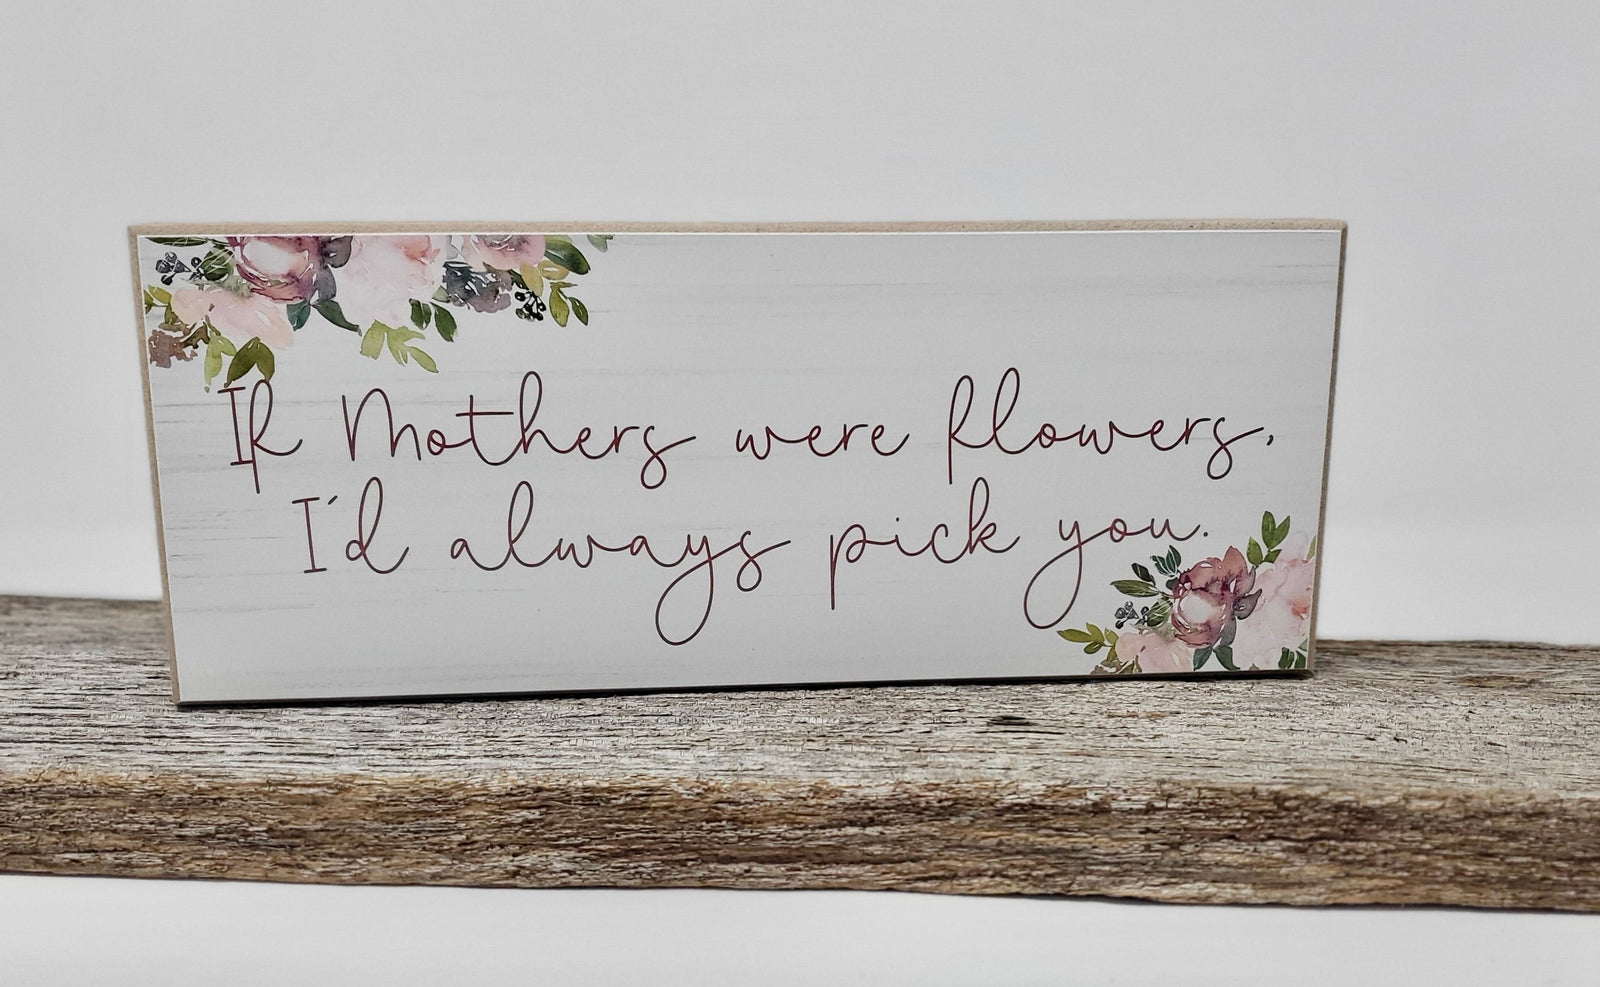 If Mothers were flowers,
I'd always pick you.